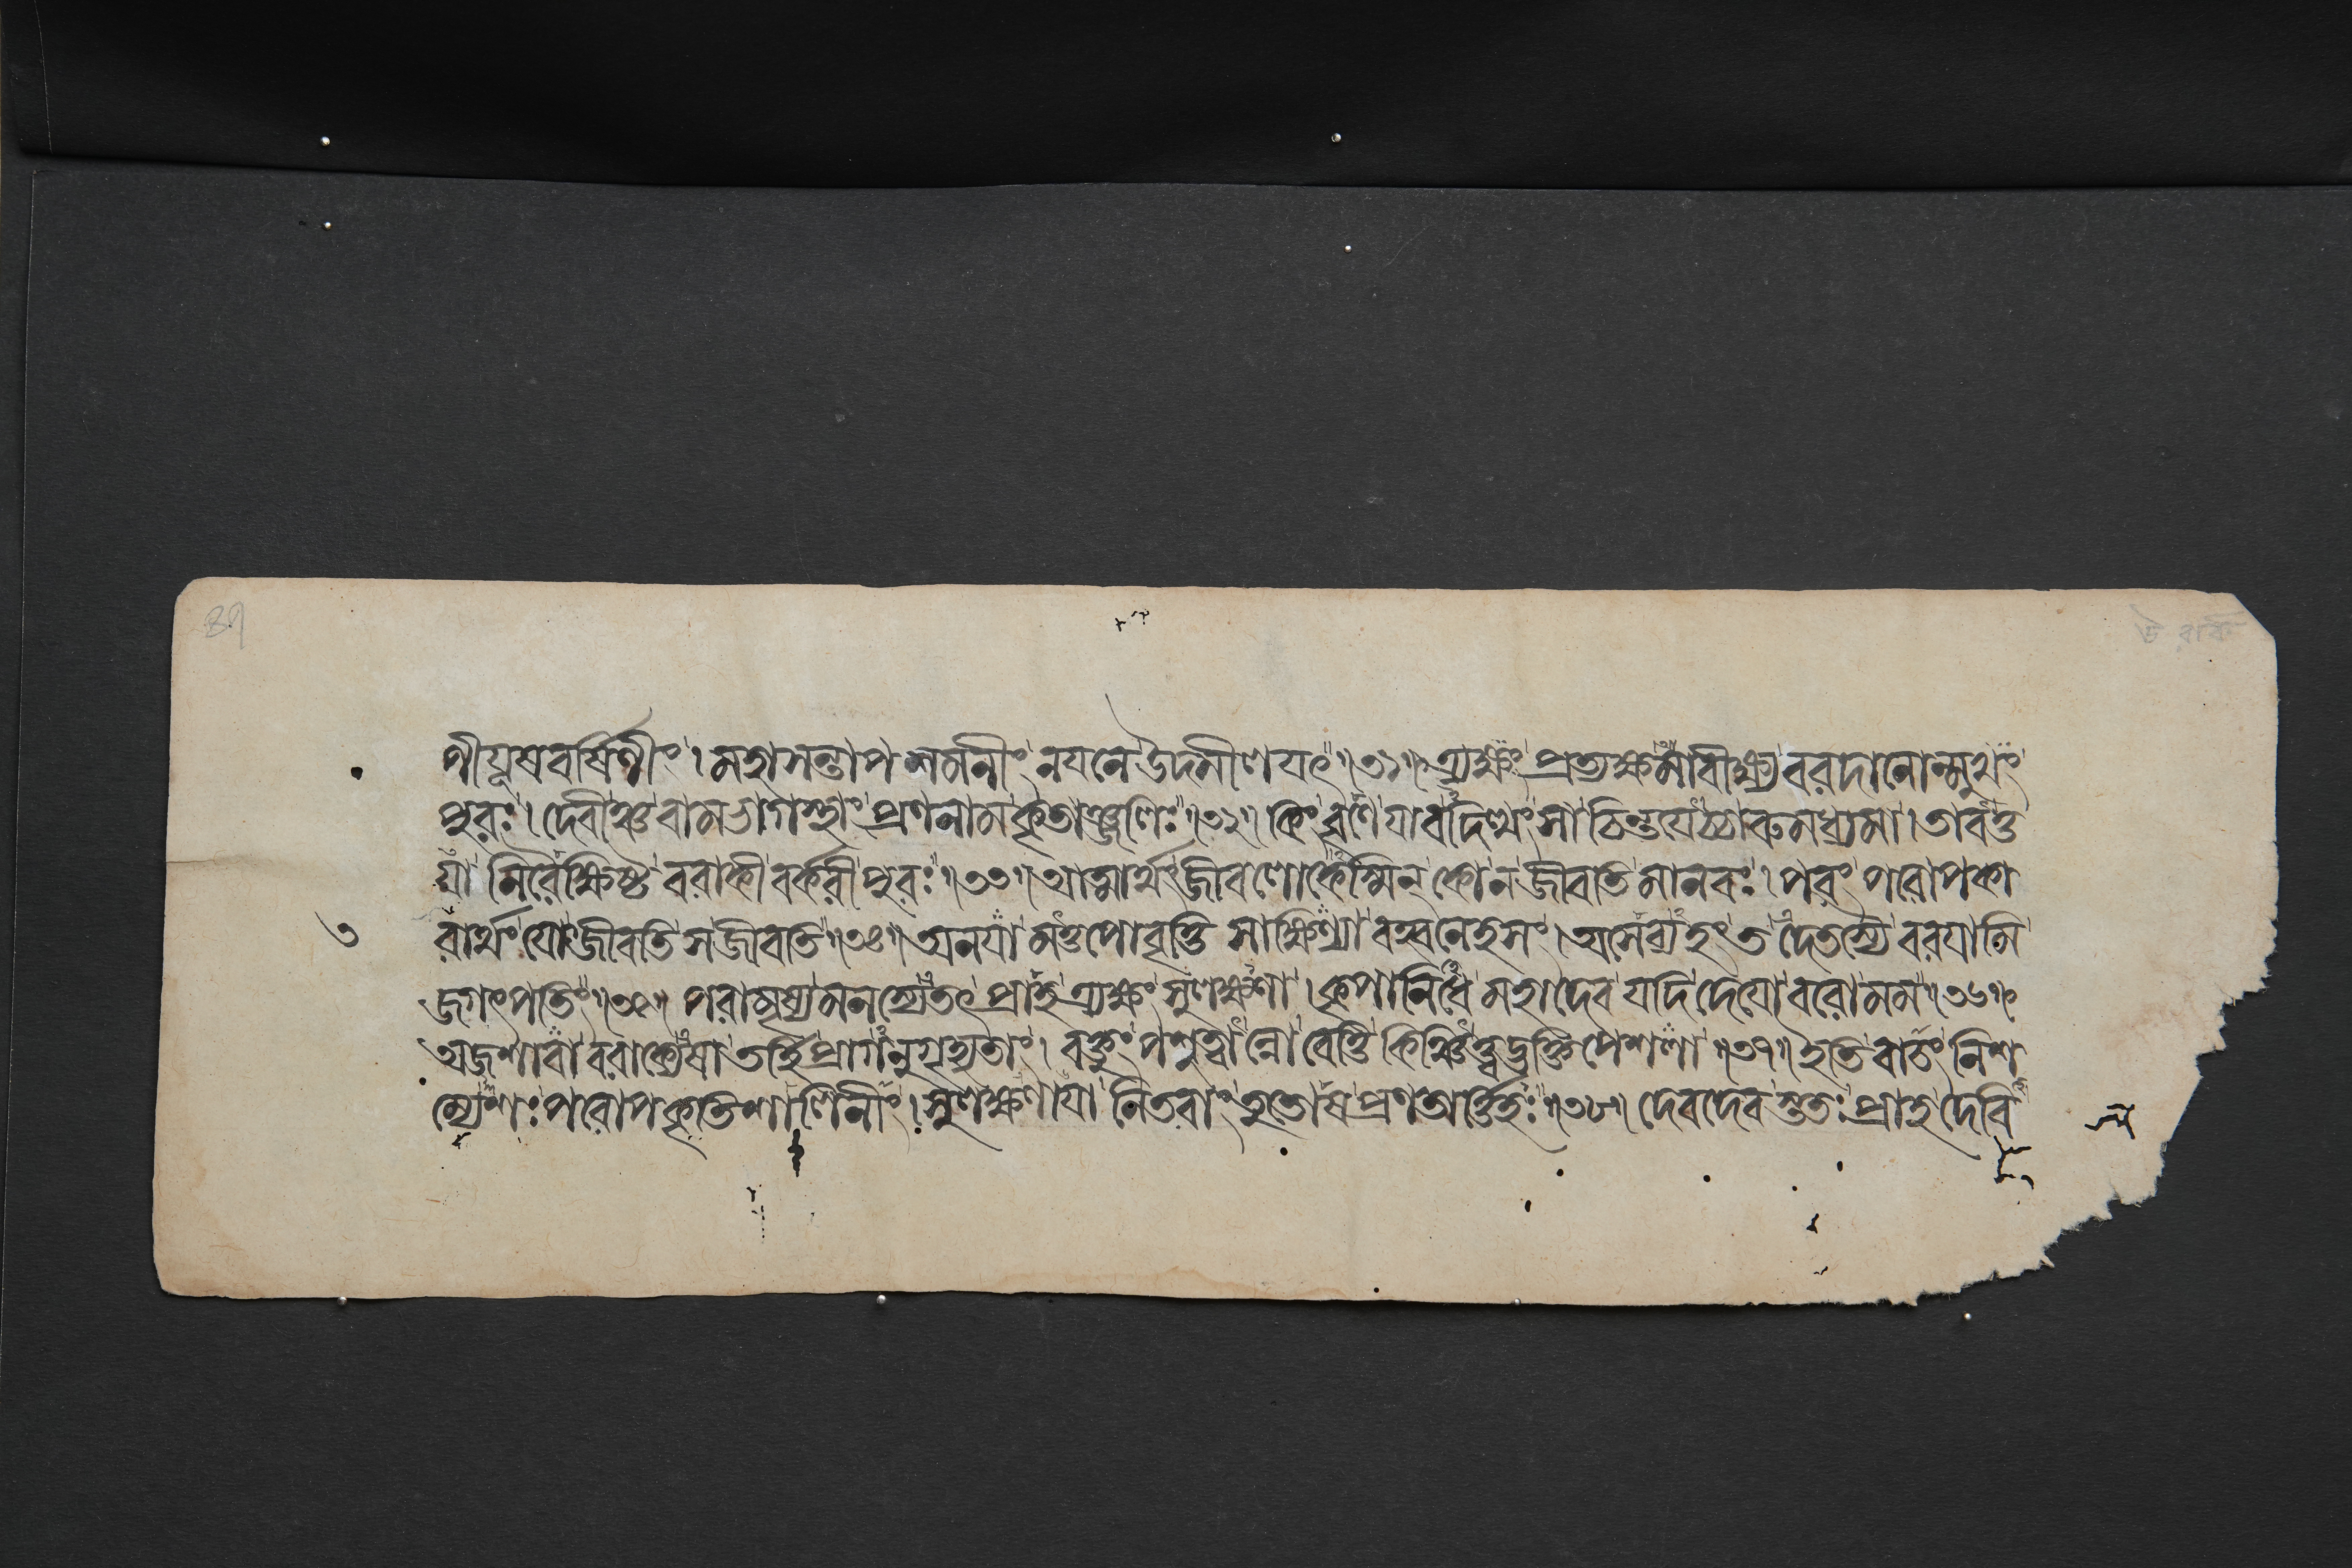 ৪৭
ণীযূষবর্ষিণীং। মহাসন্তাপশমনীং নযনে উদমীলযৎ॥৩১॥ ত্র্যক্ষং প্রত্যক্ষমাবীক্ষ্য বরদানোন্মুখং
পুরঃ। দেবীঞ্চ বামভাগস্থাং প্রণনাম কৃতাঞ্জলিঃ॥৩২॥ কিং বৃণে যাবদিত্থং সা চিন্তযেচ্চারুমধ্যমা। তাবত্ত
যা নিরৈক্ষিষ্ট বরাকী বর্করী পুরঃ॥৩৩॥ আত্মার্থং জীবলোকেস্মিন্ কো ন জীবতি মানবঃ। পরং পরোপকা
৩
রার্থং যো জীবতি স জীবতি॥৩৪॥ অনযা মত্তপোবৃত্তি সাক্ষিণ্যা বহ্বনেহসং। অসেব্যহং তদেতস্যৈ বরযামি
জগৎপতিং॥৩৫॥ পরামৃষ্য মনস্যেতৎ প্রাহ ত্র্যক্ষং সুলক্ষণা। কৃপানিধে মহাদেব যদি দেযো বরো মম॥৩৬॥
অজশাবী বরাক্যেষা তর্হি প্রাগনুগৃহ্যতাং। বক্তুং পশুত্বান্নো বেত্তি কিঞ্চিত্ত্বদ্ভক্তিপেশলা॥৩৭॥ ইতি বাচং নিশ
ম্যেশঃ পরোপকৃতিশালিনীং। সুলক্ষণাযা নিতরাং তুতোষ প্রণতার্ত্তিহৃঃ॥৩৮॥ দেবদেবস্ততঃ প্রাহ দেবি